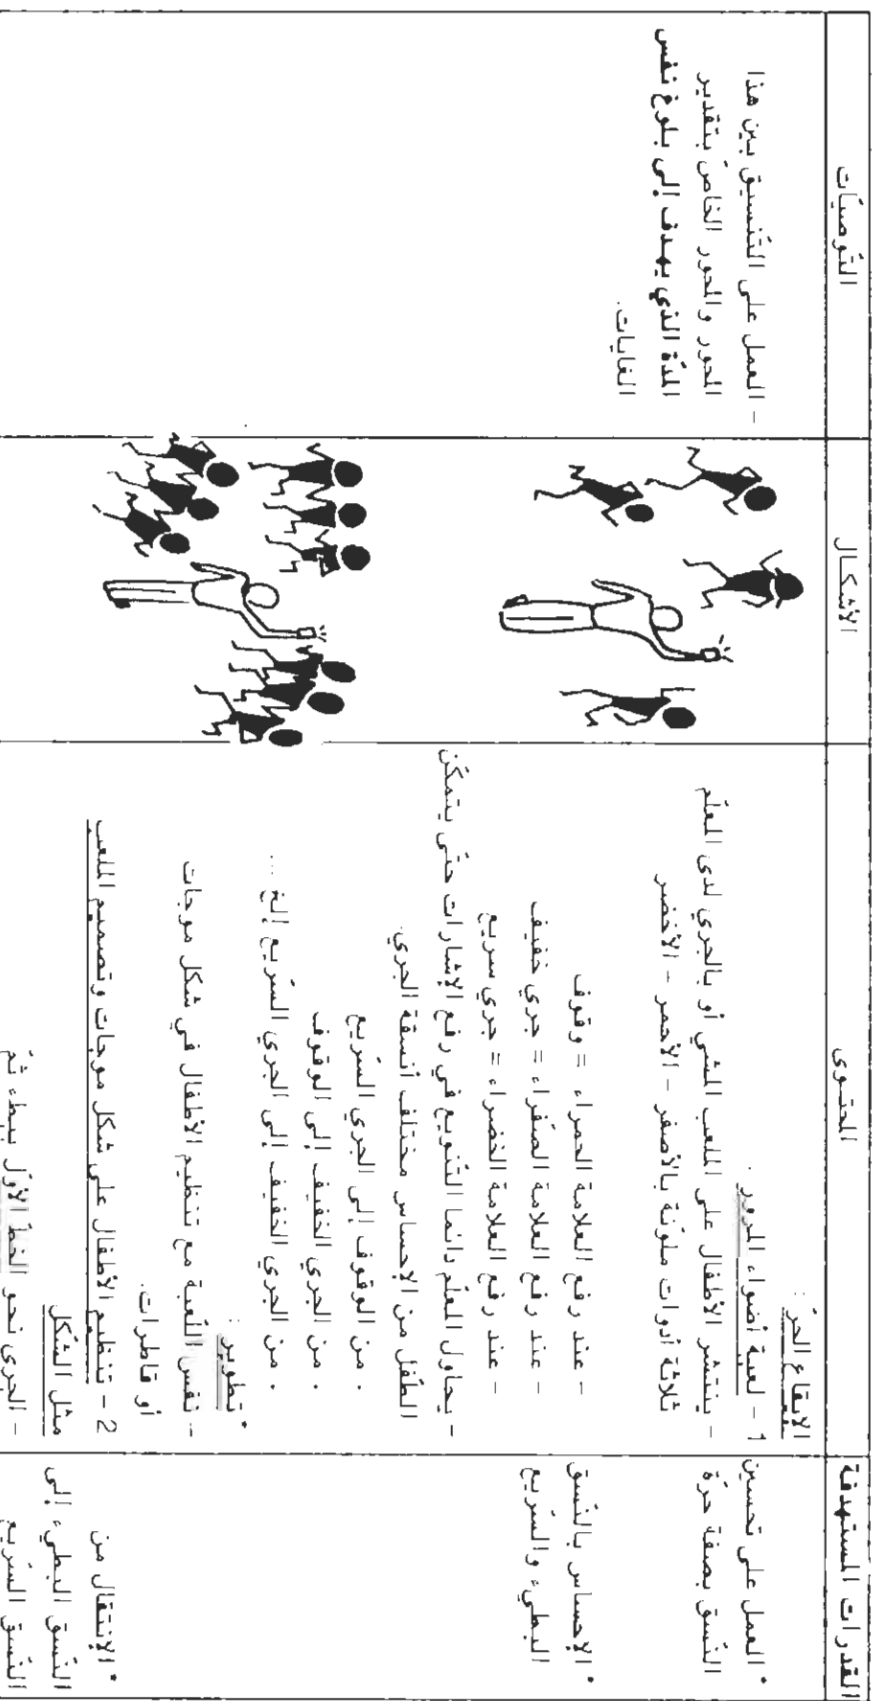 القدرات المستهدفة
المحتوى
الأشكال
التّوصيّات
* العمل على تحسين
النّسق بصفة حرّة
* الإحساس بالنّسق
البطيء والسّريع
* الإنتقال من
النّسق البطيء إلى
النّسق السّريع
الإيقاع الحرّ :
1 - لعبة أضواء المرور .
- ينتشر الأطفال على الملعب المشي أو بالجري لدى المعلّم
ثلاثة أدوات ملوّنة بالأصفر - الأحمر - الأخضر
- عند رفع العلامة الحمراء = وقوف
- عند رفع العلامة الصّفراء = جري خفيف
- عند رفع العلامة الخضراء = جري سريع
- يحاول المعلّم دائما التّنويع في رفع الإشارات حتّى يتمكّن
الطّفل من الإحساس مختلف أنسقة الجري.
. من الوقوف إلى الجري السّريع
. من الجري الخفيف إلى الوقوف
. من الجري الخفيف إلى الجري السّريع إلخ ...
* تطوير :
- نفس اللّعبة مع تنظيم الأطفال في شكل موجات
أو قاطرات.
2 - تنظيم الأطفال على شكل موجات وتصميم الملعب
مثل الشّكل
- الجري نحو الخطّ الأوّل ببطء ثمّ
- العمل على التّنسيق بين هذا
المحور والمحور الخاصّ بتقدير
المدّة الذي يهدف إلى بلوغ نفس
الغايات.